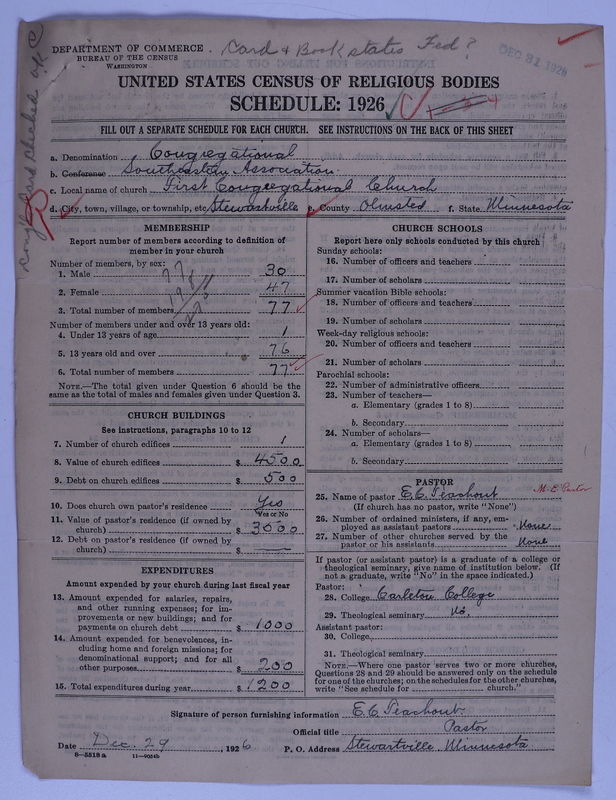 Card & Book states Fed?
DEC 31 1926
DEPARTMENT OF COMMERCE
BUREAU OF THE CENSUS
WASHINGTON
UNITED STATES CENSUS OF RELIGIOUS BODIES
SCHEDULE: 1926
FILL OUT A SEPARATE SCHEDULE FOR EACH CHURCH. SEE INSTRUCTIONS ON THE BACK OF THIS SHEET
a. Denomination Congregational
b. Conference Southeastern Association
c. Local name of church First Congregational Church
d. City, town, village, or township, etc. Stewartville e. County Olmsted f. State Minnesota
MEMBERSHIP
Report number of members according to definition of
member in your church
Number of members, by sex:
1. Male 30
2. Female 47
3. Total number of members 77
Number of members under and over 13 years old:
4. Under 13 years of age 1
5. 13 years old and over 76
6. Total number of members 77
NOTE.—The total given under Question 6 should be the
same as the total of males and females given under Question 3.
CHURCH BUILDINGS
See instructions, paragraphs 10 to 12
7. Number of church edifices 1
8. Value of church edifices $ 4500
9. Debt on church edifices $ 500
10. Does church own pastor's residence Yes
Yes or No
11. Value of pastor's residence (if owned by
church) $ 3000
12. Debt on pastor's residence (if owned by
church) $ —
EXPENDITURES
Amount expended by your church during last fiscal year
13. Amount expended for salaries, repairs,
and other running expenses; for im-
provements or new buildings; and for
payments on church debt $ 1000
14. Amount expended for benevolences, in-
cluding home and foreign missions; for
denominational support; and for all
other purposes $ 200
15. Total expenditures during year $ 1200
CHURCH SCHOOLS
Report here only schools conducted by this church
Sunday schools:
16. Number of officers and teachers
17. Number of scholars
Summer vacation Bible schools:
18. Number of officers and teachers
19. Number of scholars
Week-day religious schools:
20. Number of officers and teachers
21. Number of scholars
Parochial schools:
22. Number of administrative officers
23. Number of teachers—
a. Elementary (grades 1 to 8)
b. Secondary
24. Number of scholars—
a. Elementary (grades 1 to 8)
b. Secondary
PASTOR
M-E Pastor
25. Name of pastor E.C. Teachout
(If church has no pastor, write "None")
26. Number of ordained ministers, if any, em-
ployed as assistant pastors None
27. Number of other churches served by the
pastor or his assistants None
If pastor (or assistant pastor) is a graduate of a college or
theological seminary, give name of institution below. (If
not a graduate, write "No" in the space indicated.)
Pastor:
28. College Carleton College
29. Theological seminary No.
Assistant pastor:
30. College
31. Theological seminary
NOTE.—Where one pastor serves two or more churches,
Questions 28 and 29 should be answered only on the schedule
for one of the churches; on the schedules for the other churches,
write "See schedule for church."
Signature of person furnishing information E.C. Teachout
Official title Pastor
Date Dec. 29, 1926 P. O. Address Stewartville Minnesota
8—5518a 11—9034b